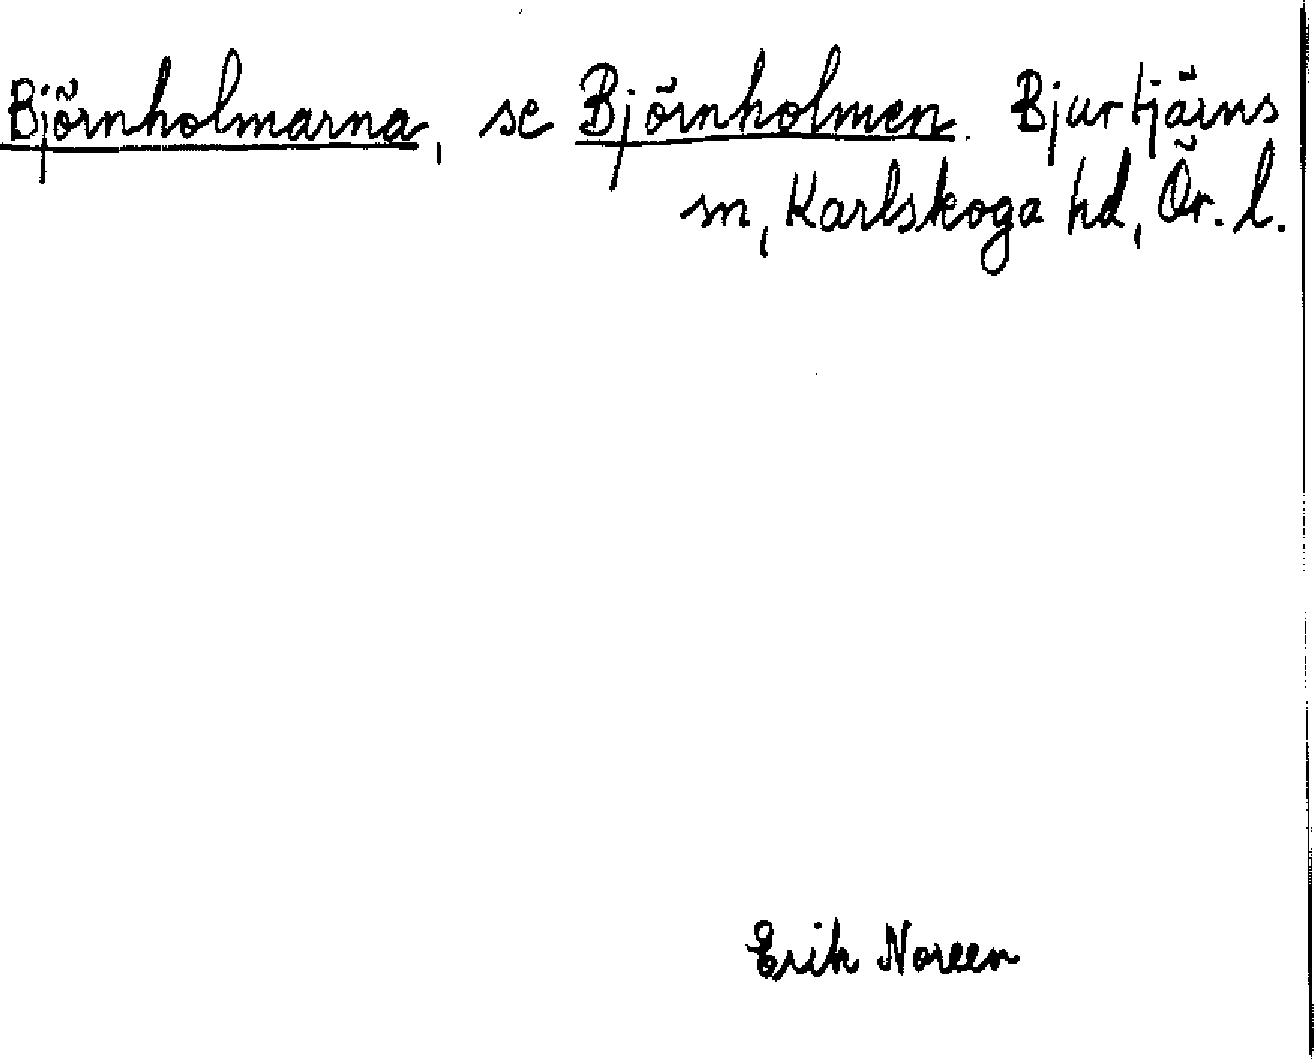 Björnholmarna, se Björnholmen. Bjurtjärns
sn, Karlskoga hd, Ör. l.
Erik Noreen